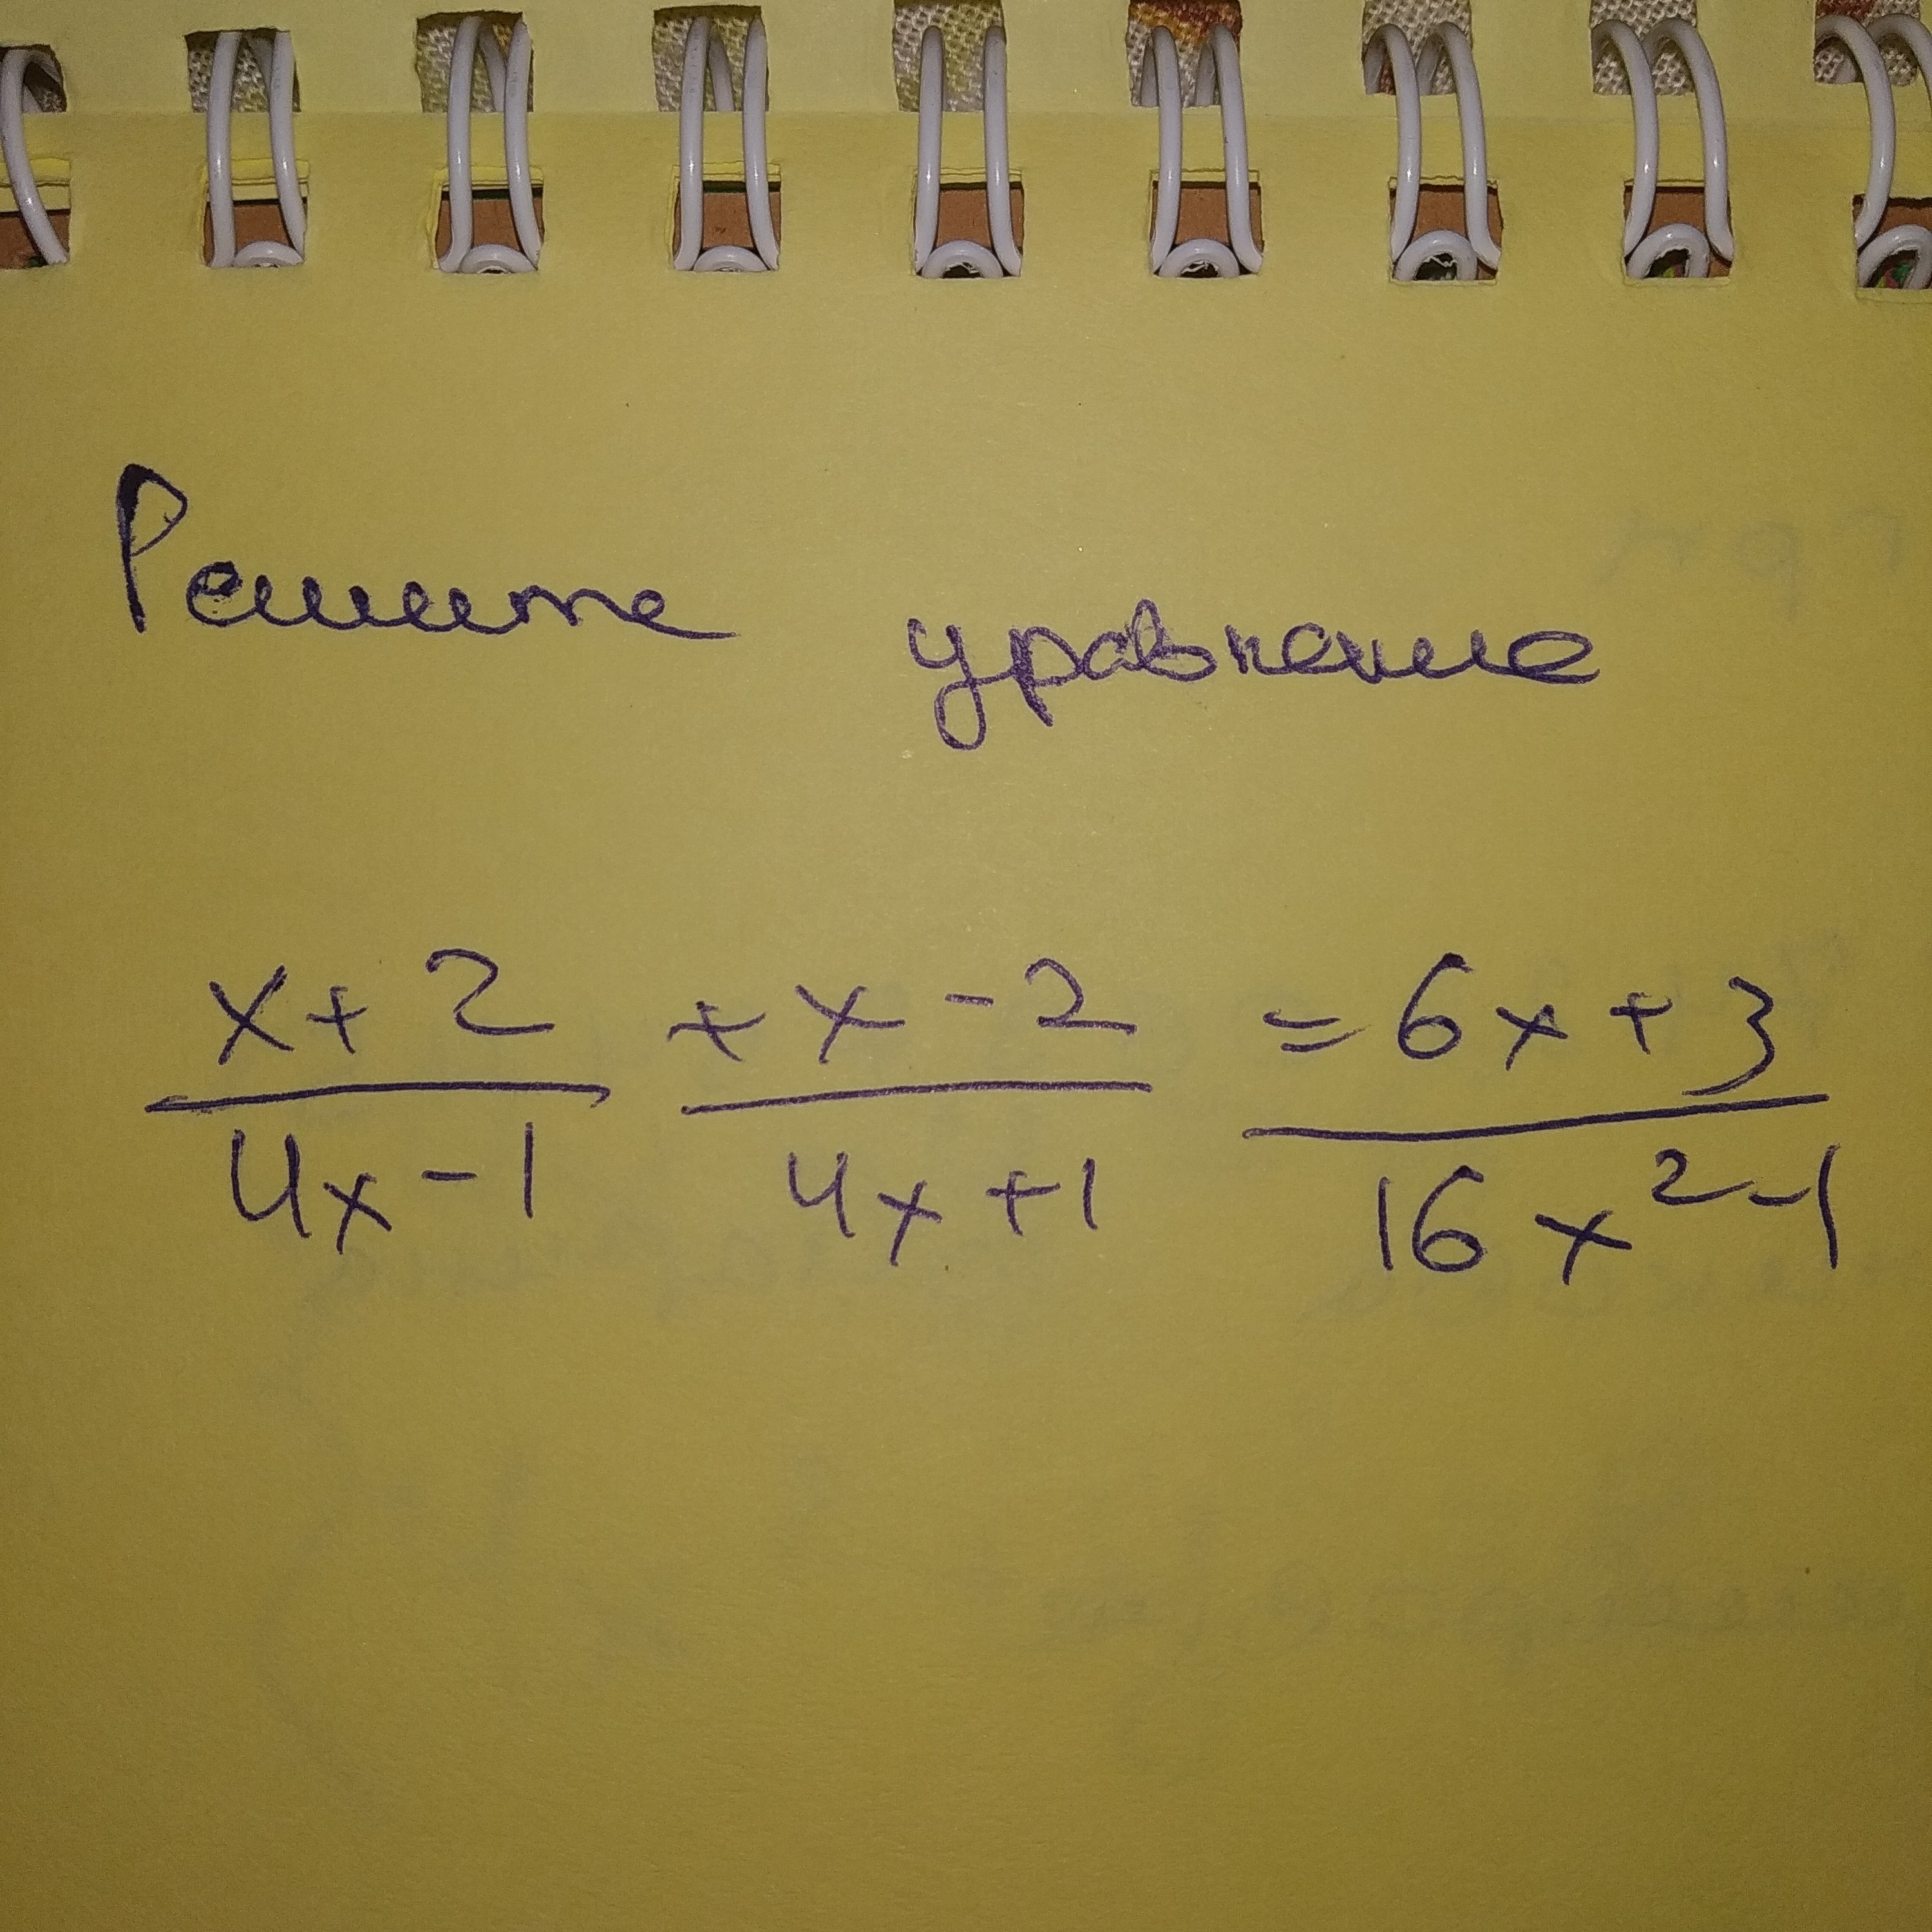 Решите уравнение
x+2 + x-2 = 6x+3
4x-1 4x+1 16x²-1